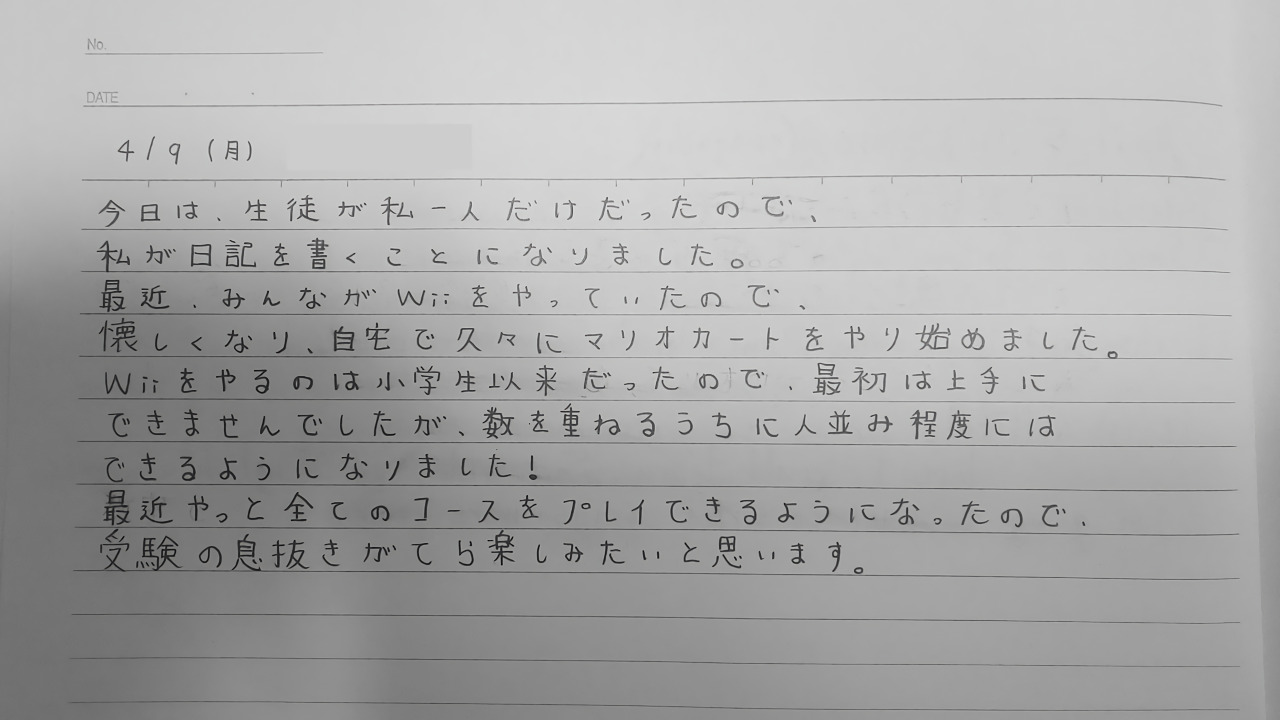 No.
DATE
4/9 (月)
今日は、生徒が私一人だけだったので、
私が日記を書くことになりました。
最近、みんながWiiをやっていたので、
懐しくなり、自宅で久々にマリオカートをやり始めました。
Wiiをやるのは小学生以来だったので、最初は上手に
できませんでしたが、数を重ねるうちに人並み程度には
できるようになりました!
最近やっと全てのコースをプレイできるようになったので、
受験の息抜きがてら楽しみたいと思います。